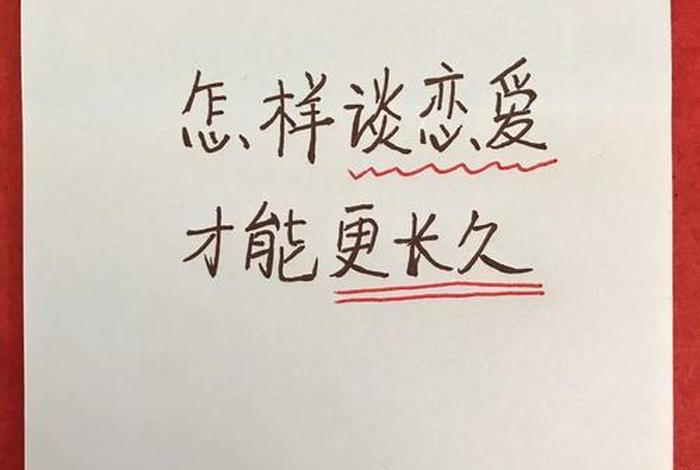 怎样谈恋爱
才能更长久